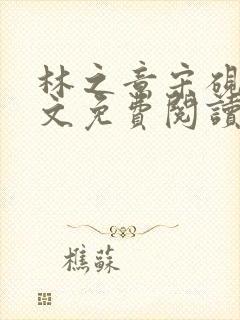 林之章宋硯
文免費閱讀
樵蘇